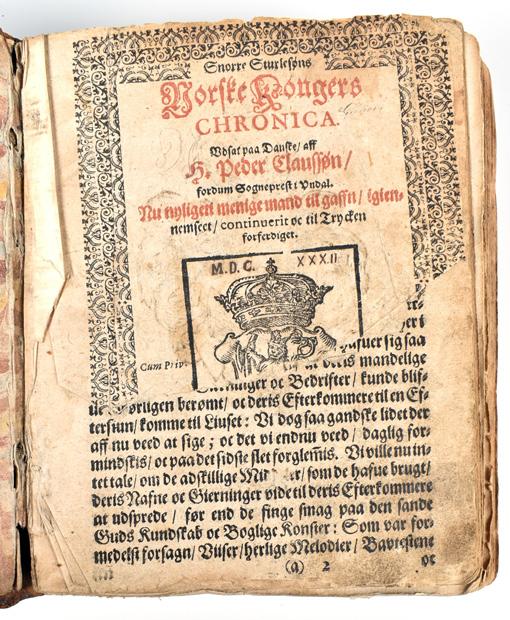 Snorre Sturlesøns
Norske Kongers
CHRONICA.
Vdsat paa Danske/ aff
H. Peder Claussøn/
fordum Sogneprest i Vndal.
Nu nyligen menige mand til gaffn/ igien-
nemseet/ continuerit oc til Trycken
forferdiget.
M.D.C. XXXII
Cum Priv
hafuer sig saa
deris mandelige
oc Bedrifter/ kunde blif-
berømt/ oc deris Efterkommere til en Ef-
tersiun/ komme til Liuset: Vi dog saa gandske lidet der
aff nu veed at sige; oc det vi endnu veed/ daglig for-
mindskis/ oc paa det sidste slet forglemis. Vi ville nu in-
tet tale/ om de adskillige Mid er/ som de hafue brugt/
deris Nafne oc Gierninger vide til deris Efterkommere
at udsprede/ før end de finge smag paa den sande
Guds Kundskab oc Boglige Konster: Som var for-
medelst forsagn/ Viiser/ herlige Melodier/ Bavtestene
(a) 2 oc